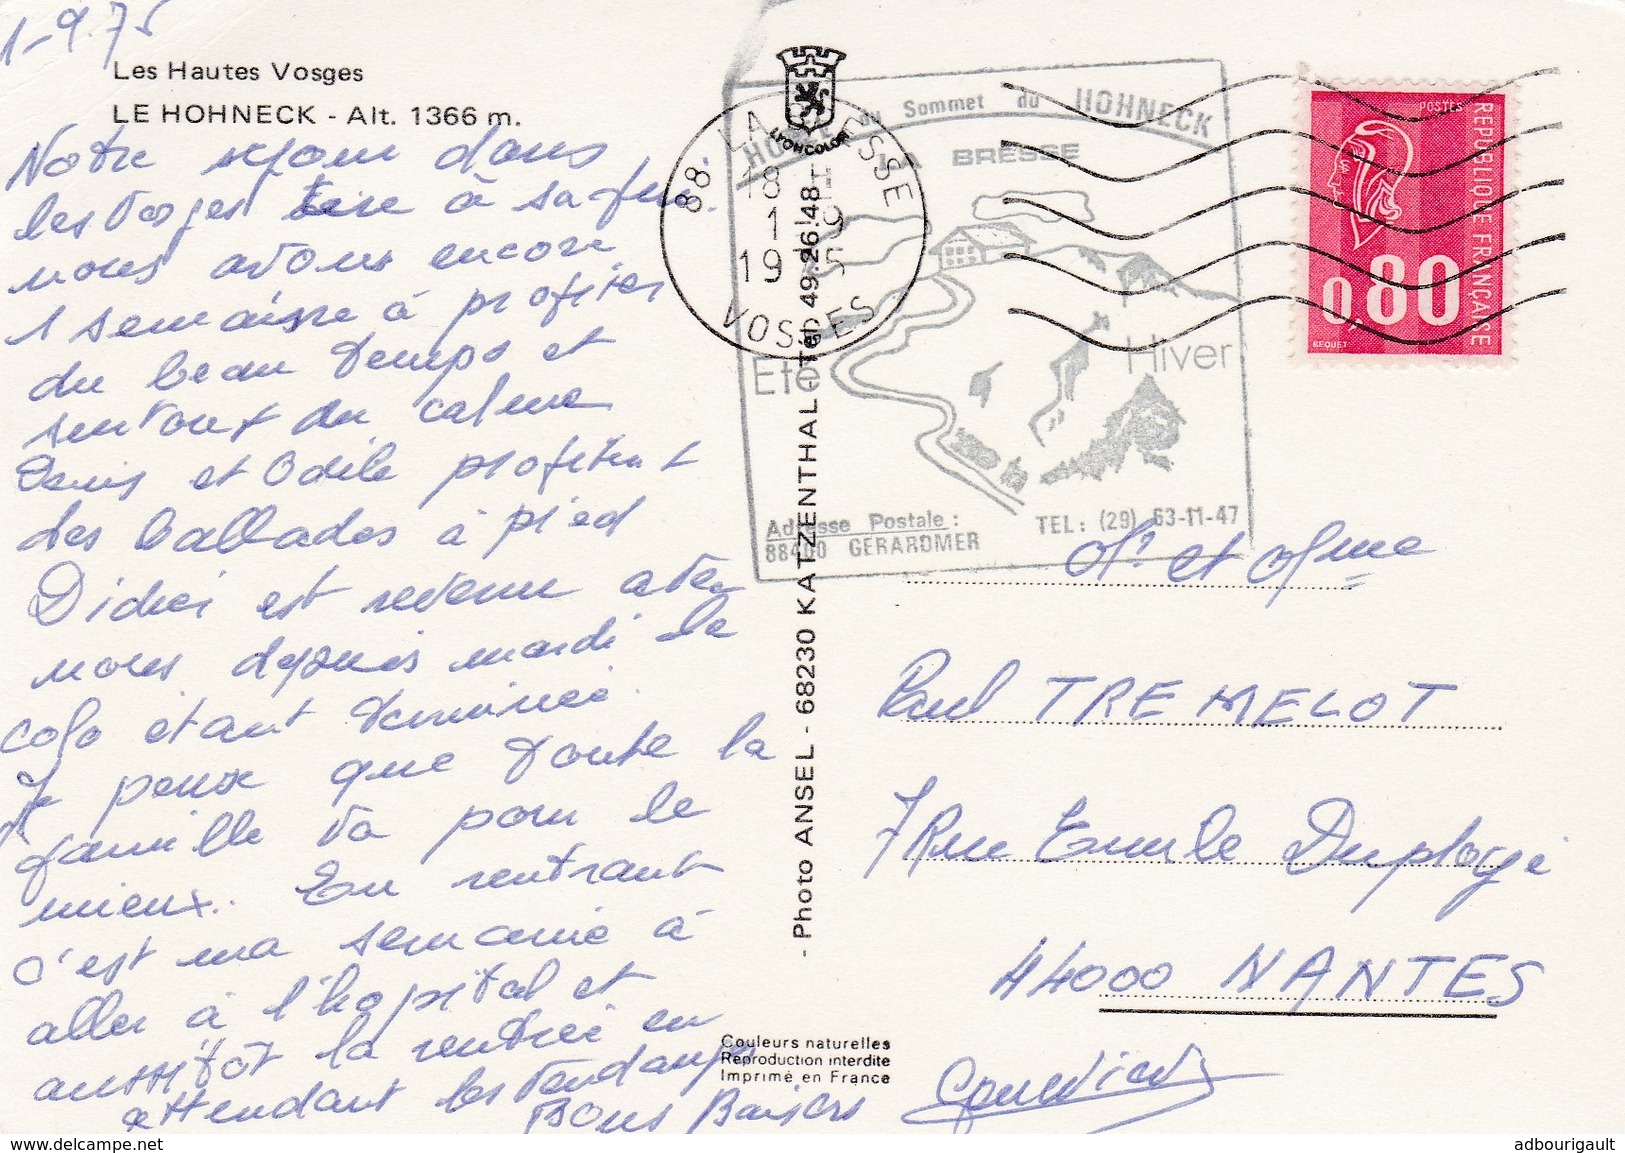 1-9.75
Les Hautes Vosges
LE HOHNECK - Alt. 1366 m.
Notre séjour dans
les Vosges tire à sa fin.
nous avons encore
1 semaine à profiter
du beau temps et
surtout du calme
Denis et Odile profitent
des ballades à pied
Didier est revenu avec
nous depuis mardi la
colo étant terminée.
Je pense que toute la
famille va pour le
mieux.. En rentrant
c'est ma semaine à
aller à l'hopital et
aussitôt la rentrée en
attendant les vendanges
Bons Baisers
LYONCOLOR
- Photo ANSEL - 68230 KATZENTHAL - Tél. 49.26.48 -
Couleurs naturelles
Reproduction interdite
Imprimé en France
88. LA BRESSE
18 H
1 9
19 5
VOSGES
du Sommet du HOHNECK
LA BRESSE
Eté
Hiver
Adresse Postale :
88400 GERARDMER
TEL : (29) 63-11-47
POSTES
REPUBLIQUE FRANÇAISE
0,80
BEQUET
Mr et Mme
Paul TREMELOT
7 Rue Emile Duployé
44000 NANTES
Les cartes de mcarre
adbourigault